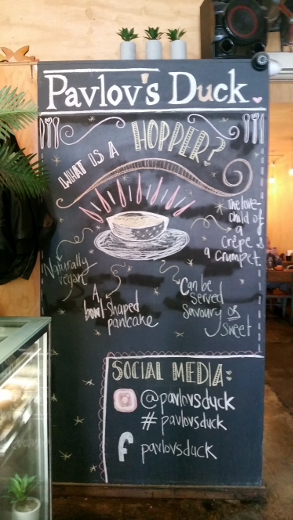 Pavlov's Duck
WHAT IS A HOPPER?
* the love
child of
a
crêpe &
a crumpet
Naturally
vegan
A
bowl-shaped
pancake
Can be
served
savoury or
sweet
SOCIAL MEDIA:
@pavlovsduck
# pavlovsduck
f pavlovsduck